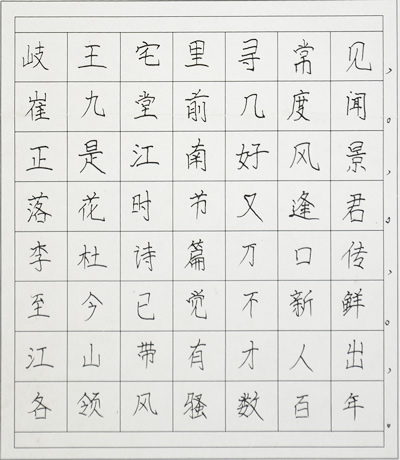 岐王宅里寻常见，
崔九堂前几度闻。
正是江南好风景，
落花时节又逢君。
李杜诗篇万口传，
至今已觉不新鲜。
江山带有才人出，
各领风骚数百年。